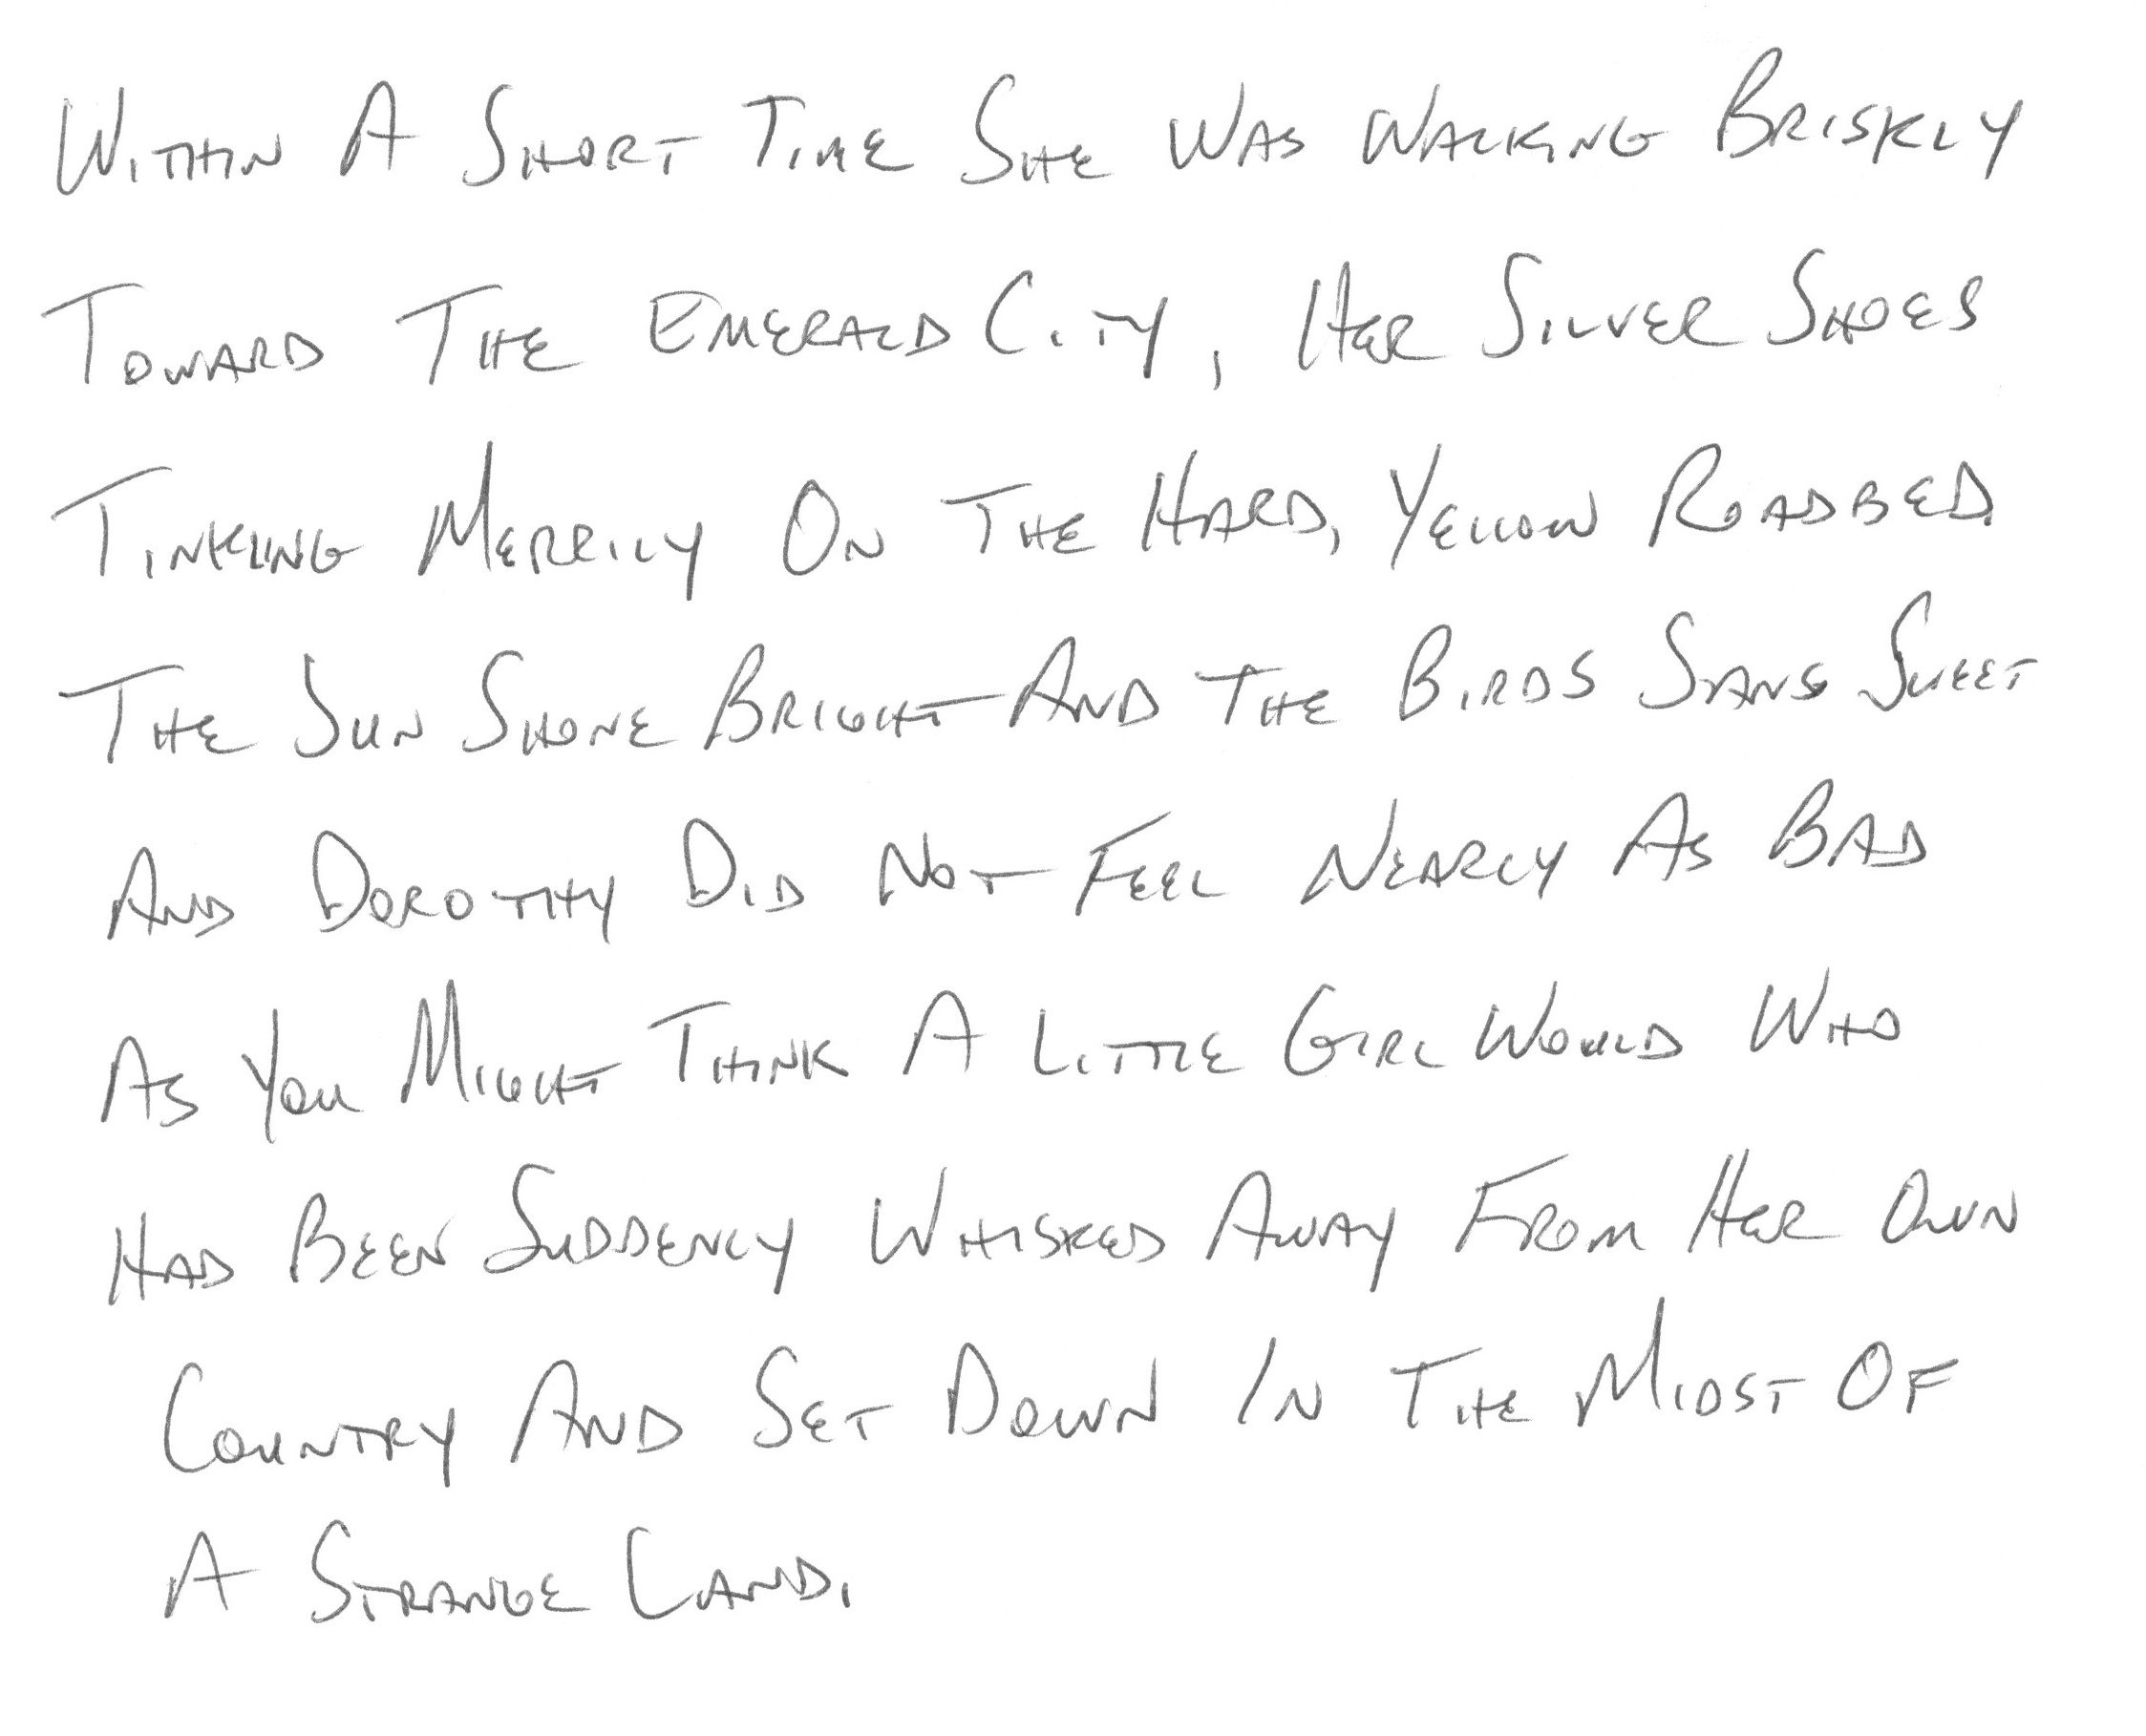 Within A Short Time She Was Walking Briskly
Toward The Emerald City, Her Silver Shoes
Tinkling Merrily On The Hard, Yellow Roadbed.
The Sun Shone Bright And The Birds Sang Sweet
And Dorothy Did Not Feel Nearly As Bad
As You Might Think A Little Girl Would Who
Had Been Suddenly Whisked Away From Her Own
Country And Set Down In The Midst Of
A Strange Land.